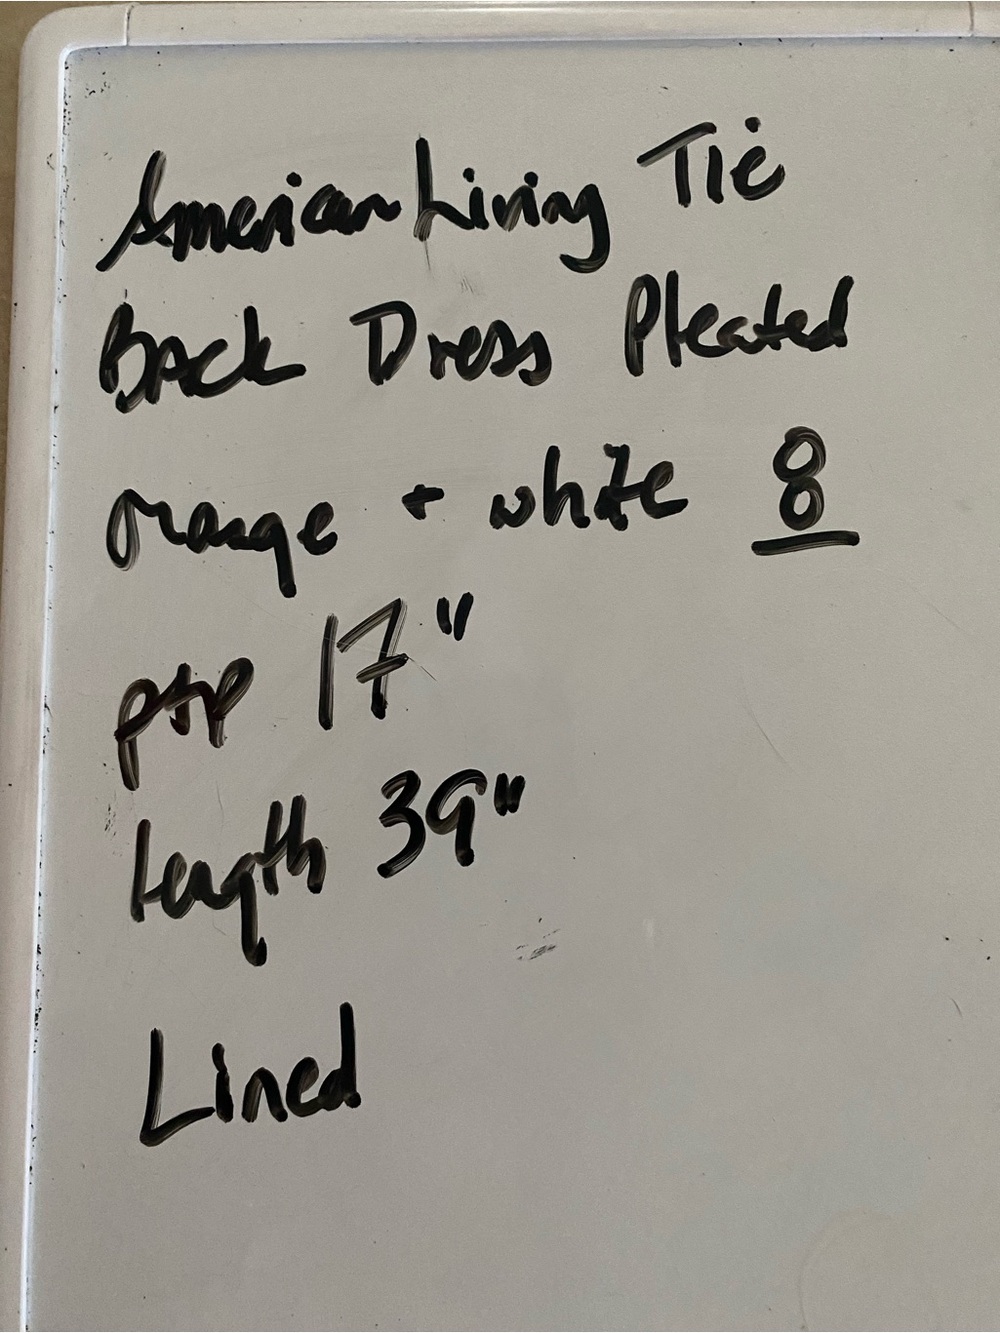 American Living Tie
Back Dress Pleated
orange + white 8
ptp 17"
length 39"
Lined